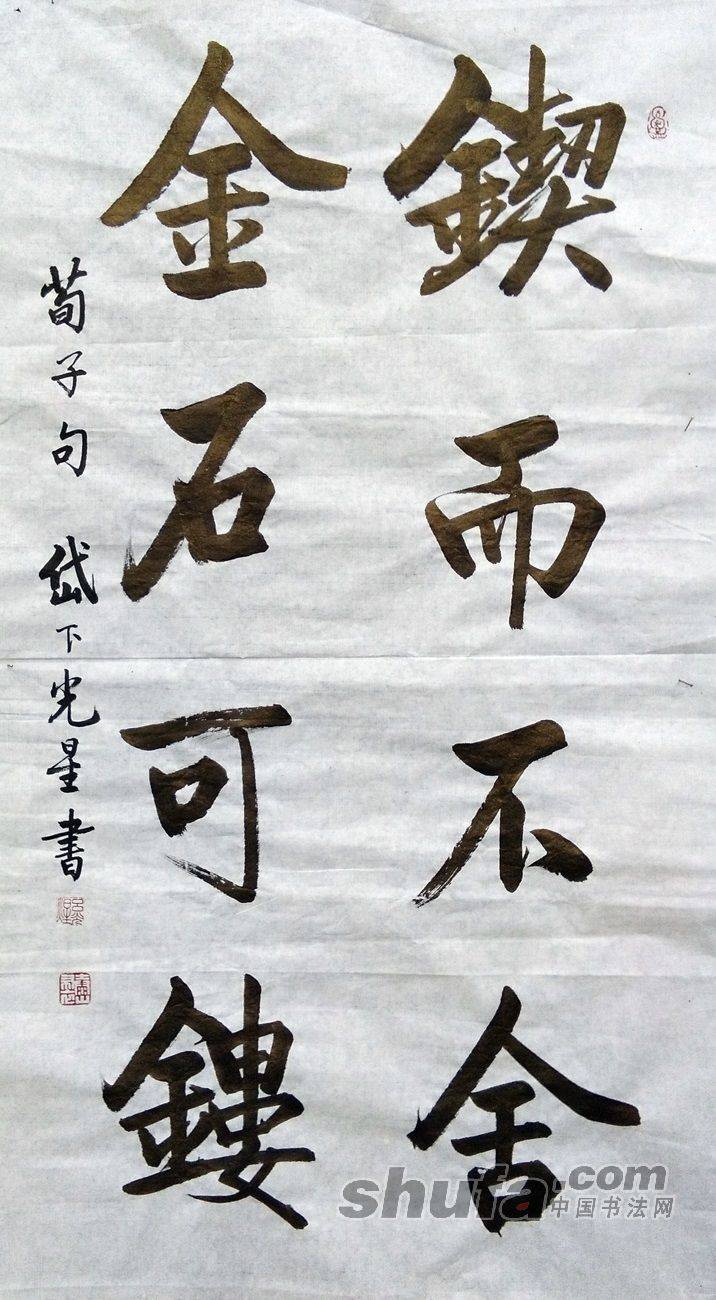 鍥而不舍
金石可鏤
荀子句 岱下光星書
shufa.com
中国书法网